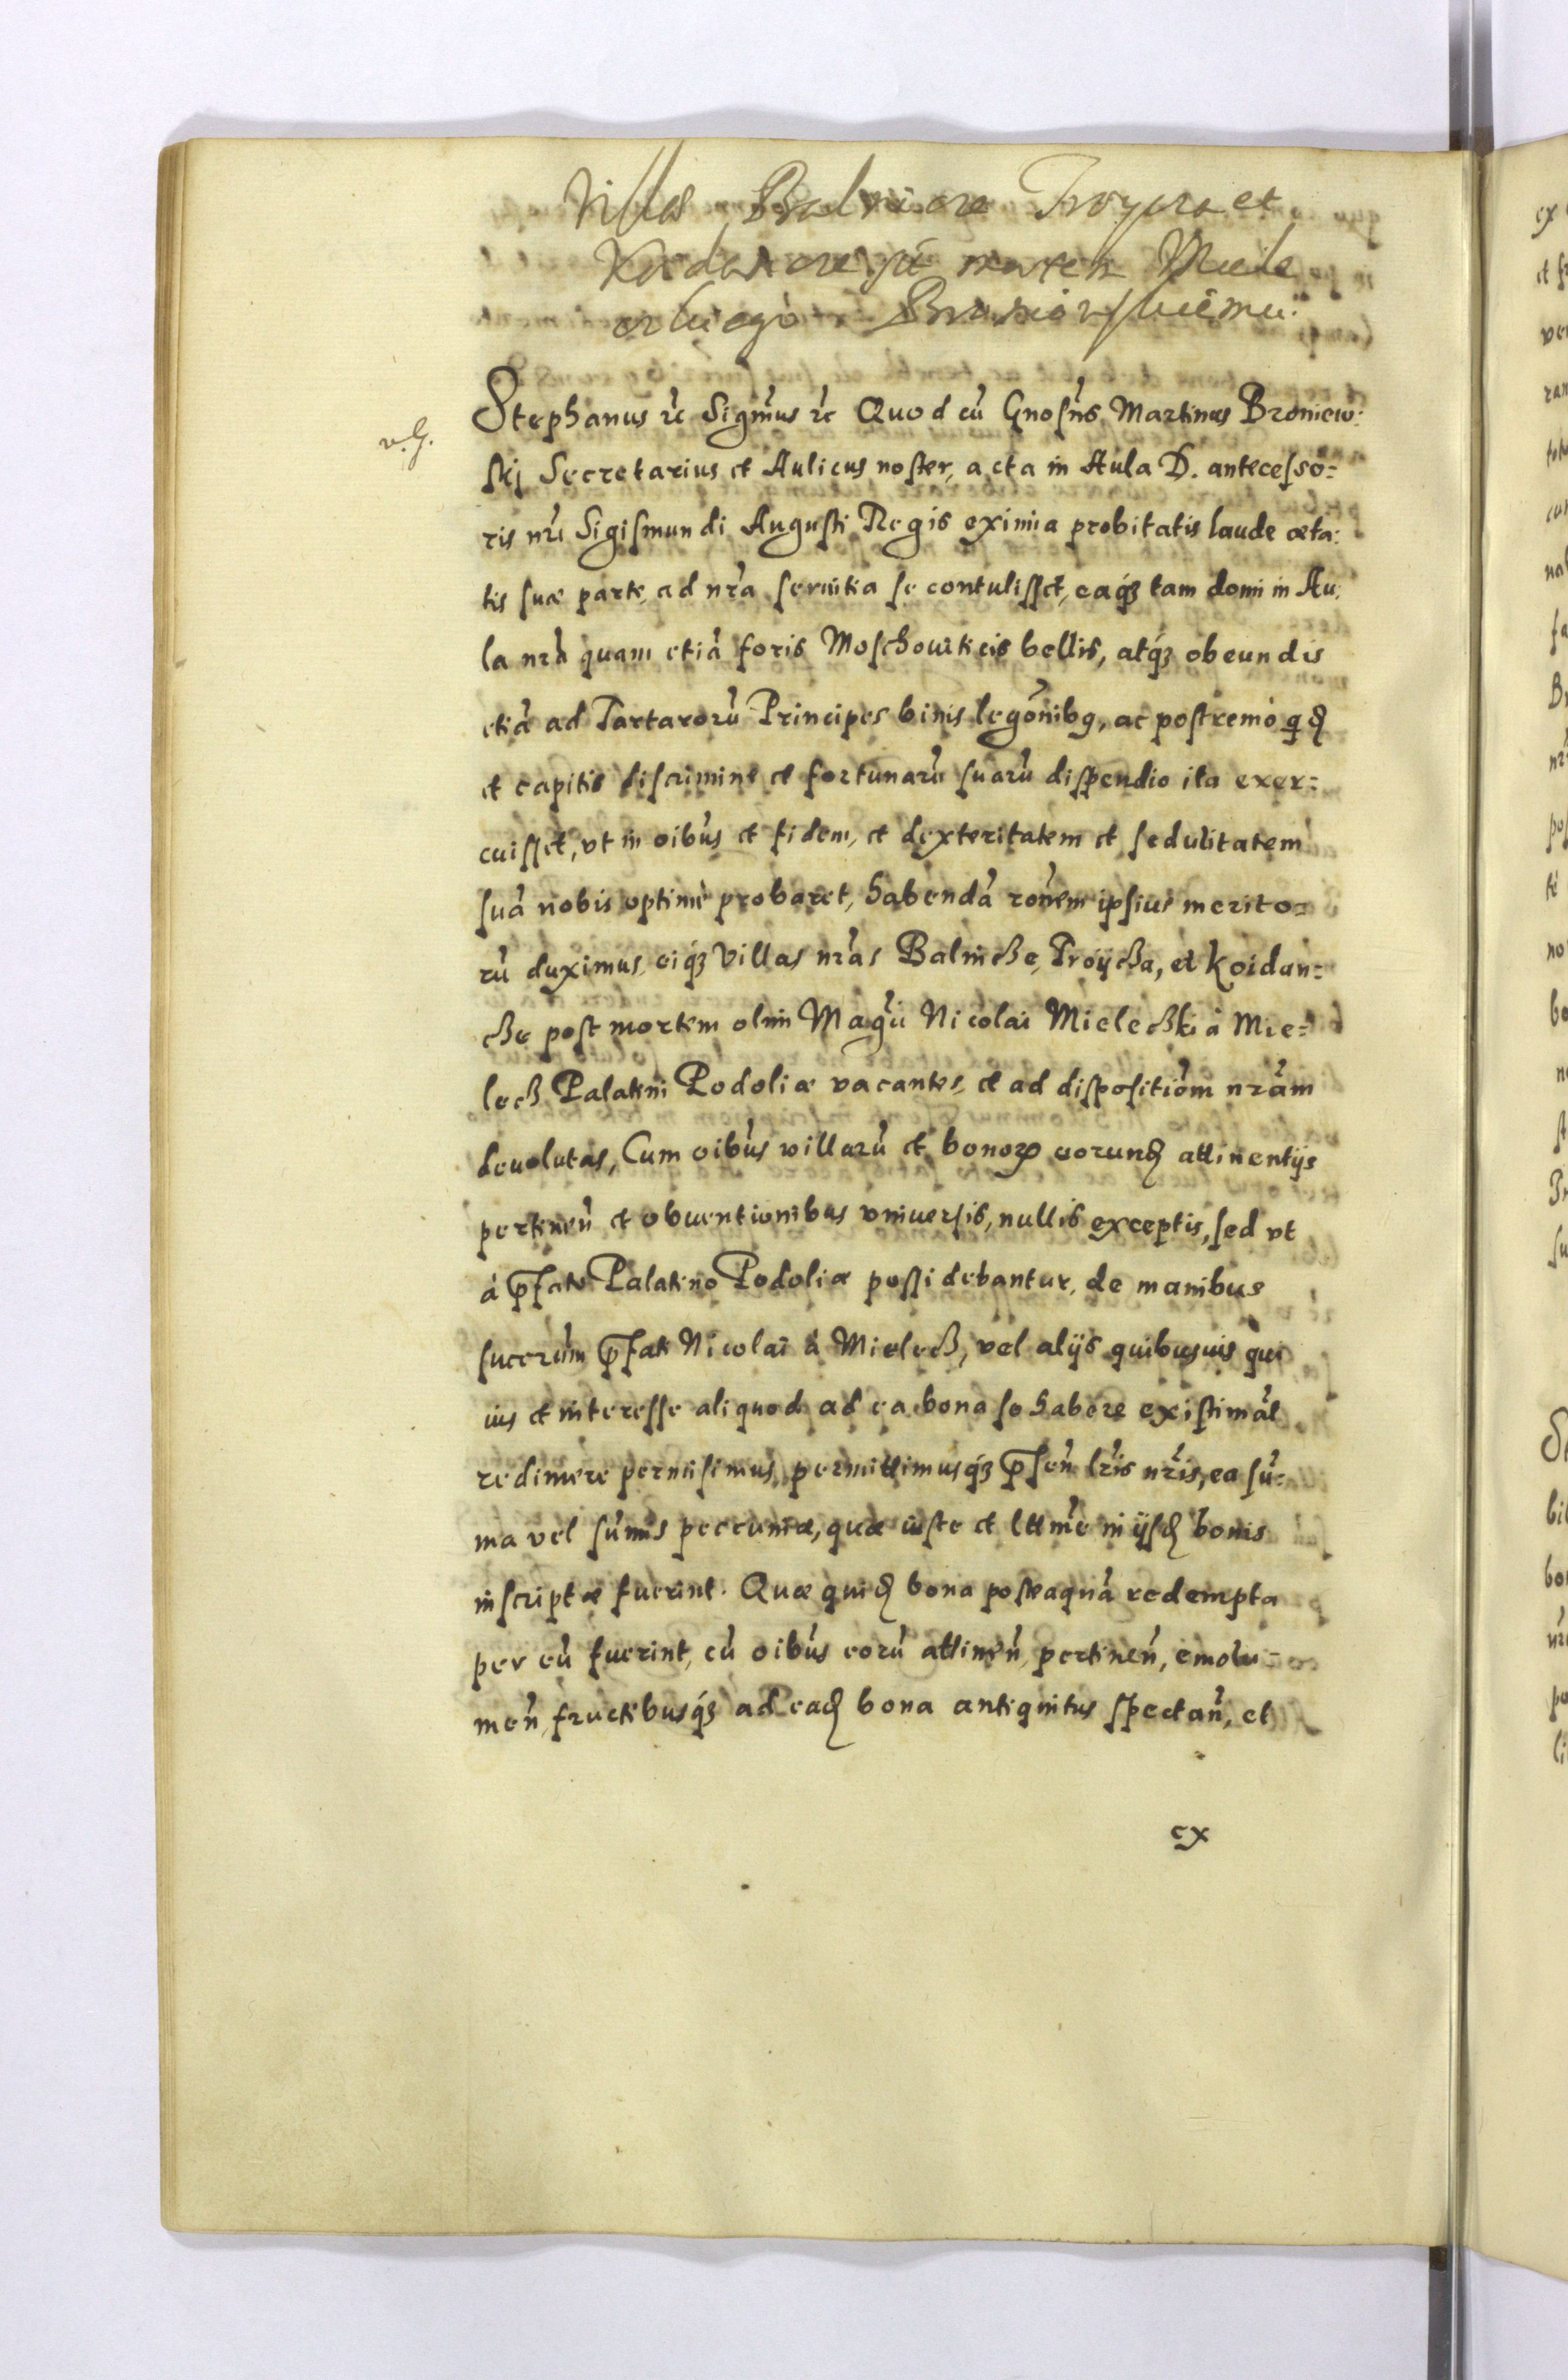 Villas Balnicze Troycza et
Koidancze post mortem Miele
czkiego Broniowskiemu
Stephanus rc̃ Sigm̃us rc̃ Quod cũ Gnosũs Martinus Broniew:
v. G.
skij Secretarius et Aulicus noster, acta in Aula D. antecesso=
ris nr̃i Sigismundi Augusti Regis eximia probitatis laude æta:
tis suæ parte, ad nr̃a servitia se contulisset, eaq́ʒ tam domi in Au:
la nr̃a quam etiã foris Moschoviticis bellis, atq́ʒ obeundis
etiã ad Tartarorũ Principes binis legõnibꝫ, ac postremò
et capitis discrimine et fortunarũ suarũ dispendio ita exer=
cuisset, vt in oĩbus et fidem, et dexteritatem et sedulitatem
suã nobis optimè probaret, habendã rõnem ipsius merito=
rũ duximus, eiq́ʒ Villas nr̃as Balnicze, Troycza, et Koidan=
cze post mortem olim Mag̃ci Nicolai Mieleczki à Mie=
lecz Palatini Podoliæ vacantes, et ad dispositiõm nr̃am
devolutas, Cum oĩbus villarũ et bonoꝝ eorund̃ attinentijs
pertineñ et obventionibus vniversis, nullis exceptis, sed vt
à p̃fato Palatino Podoliæ possidebantur, de manibus
succes̃rum p̃fati Nicolai à Mielecz, vel alijs quibusvis qui
ius et interesse aliquod ad ea bona se habere existimãt
redimere permisimus, permittimusq́ʒ p̃señ lr̃is nr̃is, ea sũ=
ma vel sũmis peccuniæ, quæ iuste et lttm̃e in ijsd̃ bonis
inscriptæ fuerint. Quæ quid̃ bona posteaquã redempta
per eũ fuerint, cũ oĩbus eorũ attineñ, pertineñ, emolu=
meñ, fructibusq́ʒ ad ead̃ bona antiquitus spectañ, et
ex